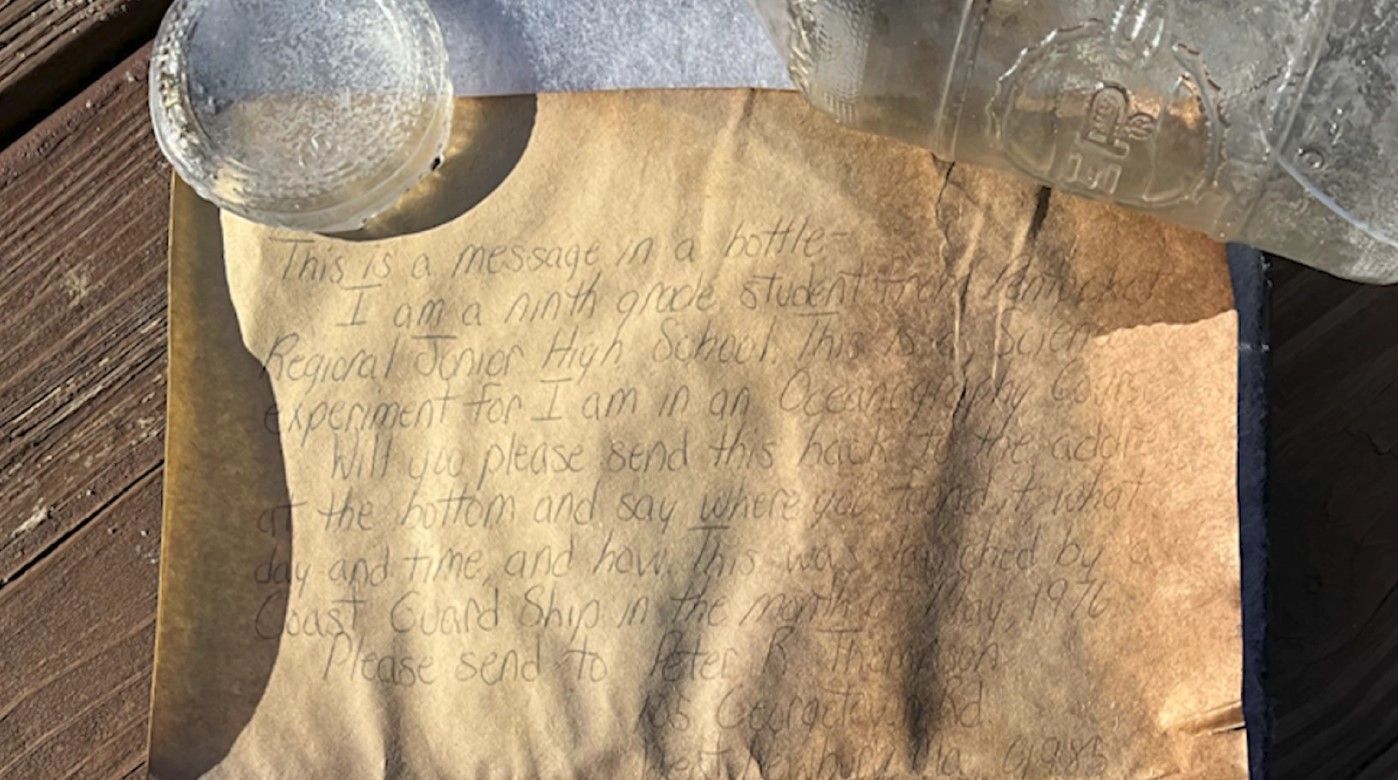 This is a message in a bottle-
I am a ninth grade student from Pentucket
Regional Junior High School. This is a
experiment for I am in an Oceanography
Will you please send this back to the
at the bottom and say where you found it, what
day and time, and how. This was launched by a
Coast Guard Ship in the month of May, 1976
Please send to Peter R Thompson
Georgetown Rd.
Ma. 01985